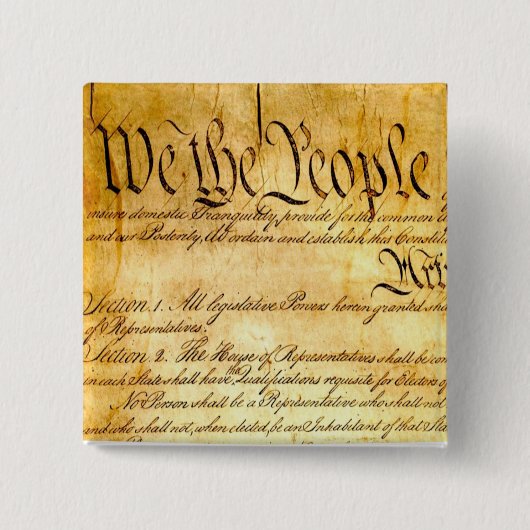 We the People
insure domestic Tranquility, provide for the common
and our Posterity, do ordain and establish this Constitu
Section. 1. All legislative Powers herein granted sha
of Representatives.
Section. 2. The House of Representatives shall be com
in each State shall have the Qualifications requisite for Electors o
No Person shall be a Representative who shall not
and who shall not, when elected, be an Inhabitant of that Sta